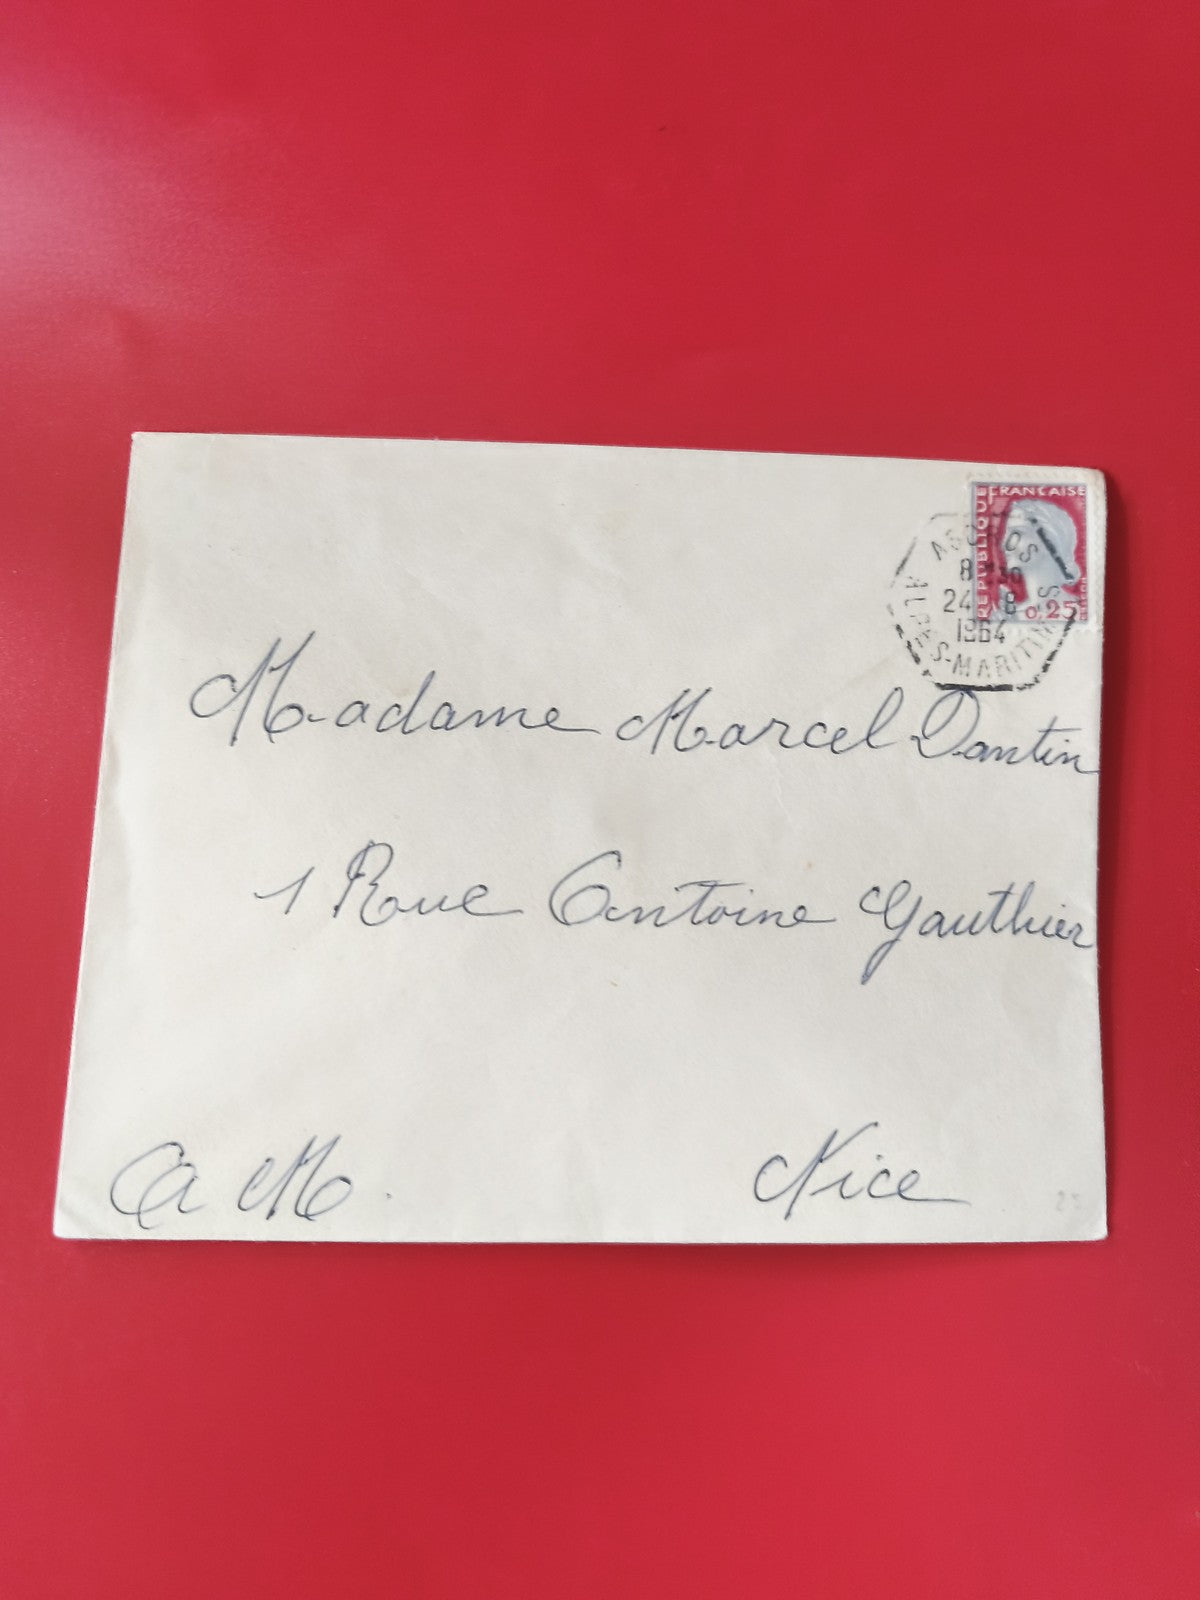 RÉPUBLIQUE FRANÇAISE
0,25
ASCROS
8H30
24 - 8
1964
ALPES-MARITIMES
Madame Marcel Dantin
1 Rue Antoine Gauthier
A M. Nice